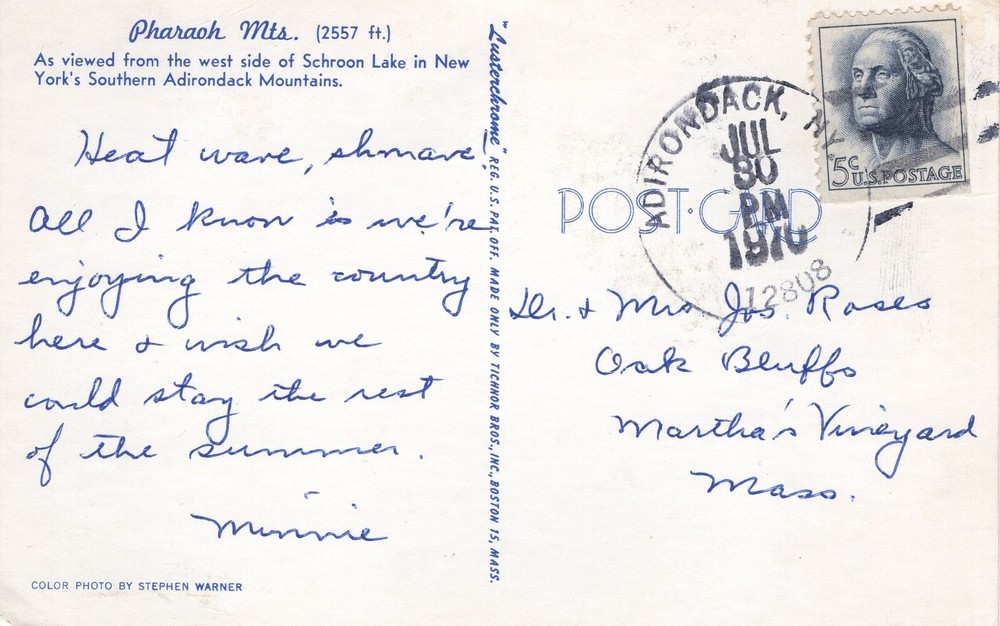 Pharaoh Mts. (2557 ft.)
As viewed from the west side of Schroon Lake in New
York's Southern Adirondack Mountains.
Heat wave, shmave!
All I know is we're
enjoying the country
here & wish we
could stay the rest
of the summer.
Minnie
COLOR PHOTO BY STEPHEN WARNER
"Lusterchrome" REG. U.S. PAT. OFF. MADE ONLY BY TICHNOR BROS., INC., BOSTON 15, MASS.
5c U.S. POSTAGE
ADIRONDACK, NY.
JUL
30
PM
1970
12808
POST·CARD
Dr. & Mrs. Jos. Roses
Oak Bluffs
Martha's Vineyard
Mass.